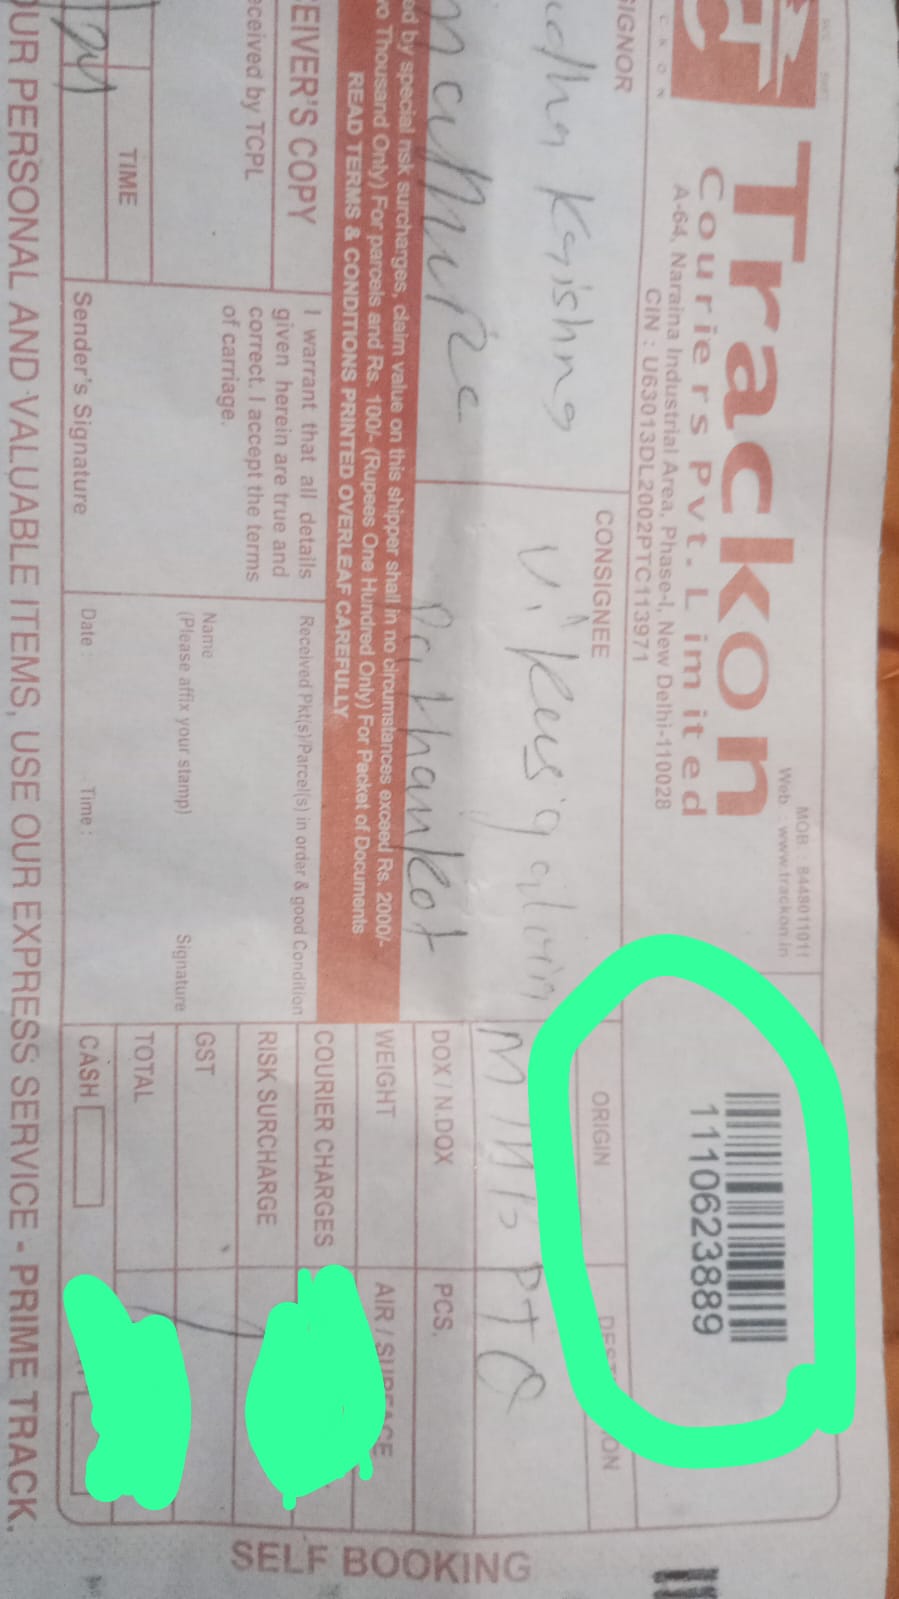 Trackon
Couriers Pvt. Limited
A-64, Naraina Industrial Area, Phase-I, New Delhi-110028
CIN : U63013DL2002PTC113971
MOB : 8448011011
Web : www.trackon.in
1110623889
SIGNOR
CONSIGNEE
ORIGIN
Krishna
Pathankot
DOX / N.DOX
PCS.
WEIGHT
AIR / SURFACE
COURIER CHARGES
RISK SURCHARGE
GST
TOTAL
CASH
ed by special risk surcharges, claim value on this shipper shall in no circumstances exceed Rs. 2000/-
vo Thousand Only) For parcels and Rs. 100/- (Rupees One Hundred Only) For Packet of Documents
READ TERMS & CONDITIONS PRINTED OVERLEAF CAREFULLY
EIVER'S COPY
eceived by TCPL
TIME
I warrant that all details
given herein are true and
correct. I accept the terms
of carriage.
Sender's Signature
Received Pkt(s)/Parcel(s) in order & good Condition
Name
(Please affix your stamp)
Signature
Date :
Time :
OUR PERSONAL AND VALUABLE ITEMS, USE OUR EXPRESS SERVICE - PRIME TRACK.
SELF BOOKING